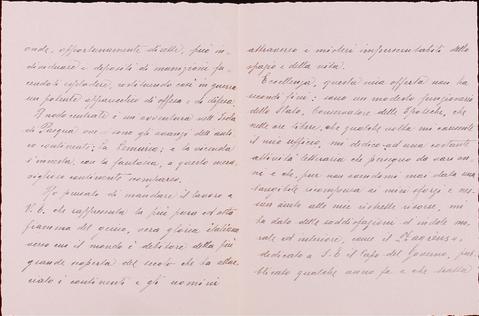 onde, opportunamente dirette, può in-
dividuare i depositi di munizioni fa-
cendoli esplodere, costituendo così in guerra
un potente apparecchio di offesa e di difesa.
Nodo centrale è un'avventura nell'Isola
di Pasqua ove ci sono gli avanzi dell'anti-
co continente: la Lemuria; e la vicenda
s'innesta, con la fantasia, a questo mera-
viglioso continente scomparso.
Ho pensato di mandare il lavoro a
V. E. che rappresenta la più pura ed alta
fiamma del genio, vera gloria italiana
verso cui il mondo è debitore della più
grande scoperta del secolo che ha allac-
ciato i continenti e gli uomini
attraverso i misteri imperscrutabili dello
spazio e della vita.
Eccellenza, questa mia offerta non ha
secondi fini: sono un modesto funzionario
dello Stato, Conservatore delle Ipoteche, che
nelle ore libere, che qualche volta mi consente
il mio ufficio, mi dedico ad una costante
attività letteraria che perseguo da vari an-
ni e che, pur non essendomi mai stata una
tangibile ricompensa ai miei sforzi e nes-
sun aiuto alle mie risorse, mi
ha dato delle soddisfazioni d'indole mo-
rale ed interiore, come il
dedicato a S. E. il Capo del Governo, pub-
blicato qualche anno fa e che